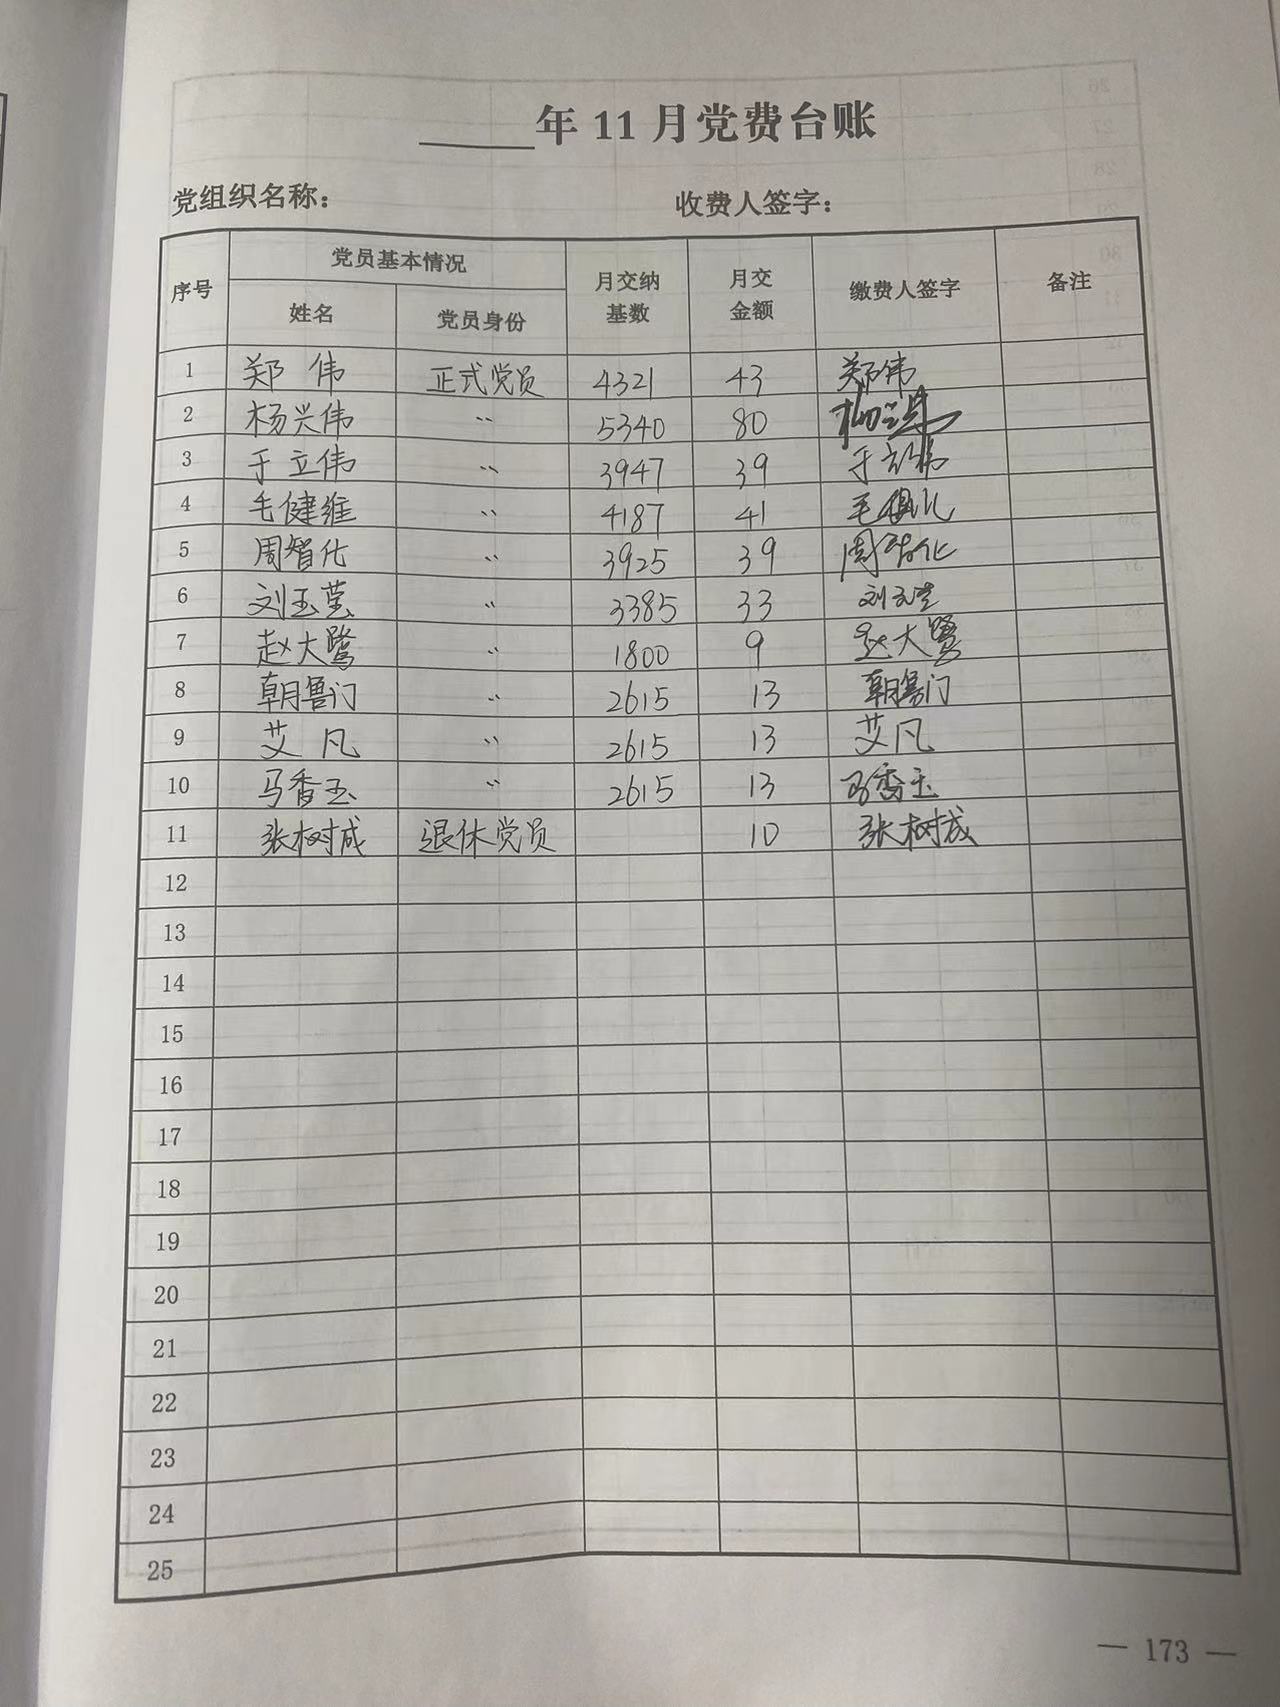 年 11 月党费台账
党组织名称： 收费人签字：
序号 党员基本情况 月交纳基数 月交金额 缴费人签字 备注
姓名 党员身份
1 郑伟 正式党员 4321 43 郑伟
2 杨兴伟 〃 5340 80
3 于立伟 〃 3947 39 于立伟
4 毛健维 〃 4187 41
5 周智化 〃 3925 39 周智化
6 刘玉莹 〃 3385 33 刘玉莹
7 赵大鹭 〃 1800 9 赵大鹭
8 朝鲁门 〃 2615 13 朝鲁门
9 艾凡 〃 2615 13 艾凡
10 马香玉 〃 2615 13 马香玉
11 张树成 退休党员 10 张树成
12
13
14
15
16
17
18
19
20
21
22
23
24
25
— 173 —